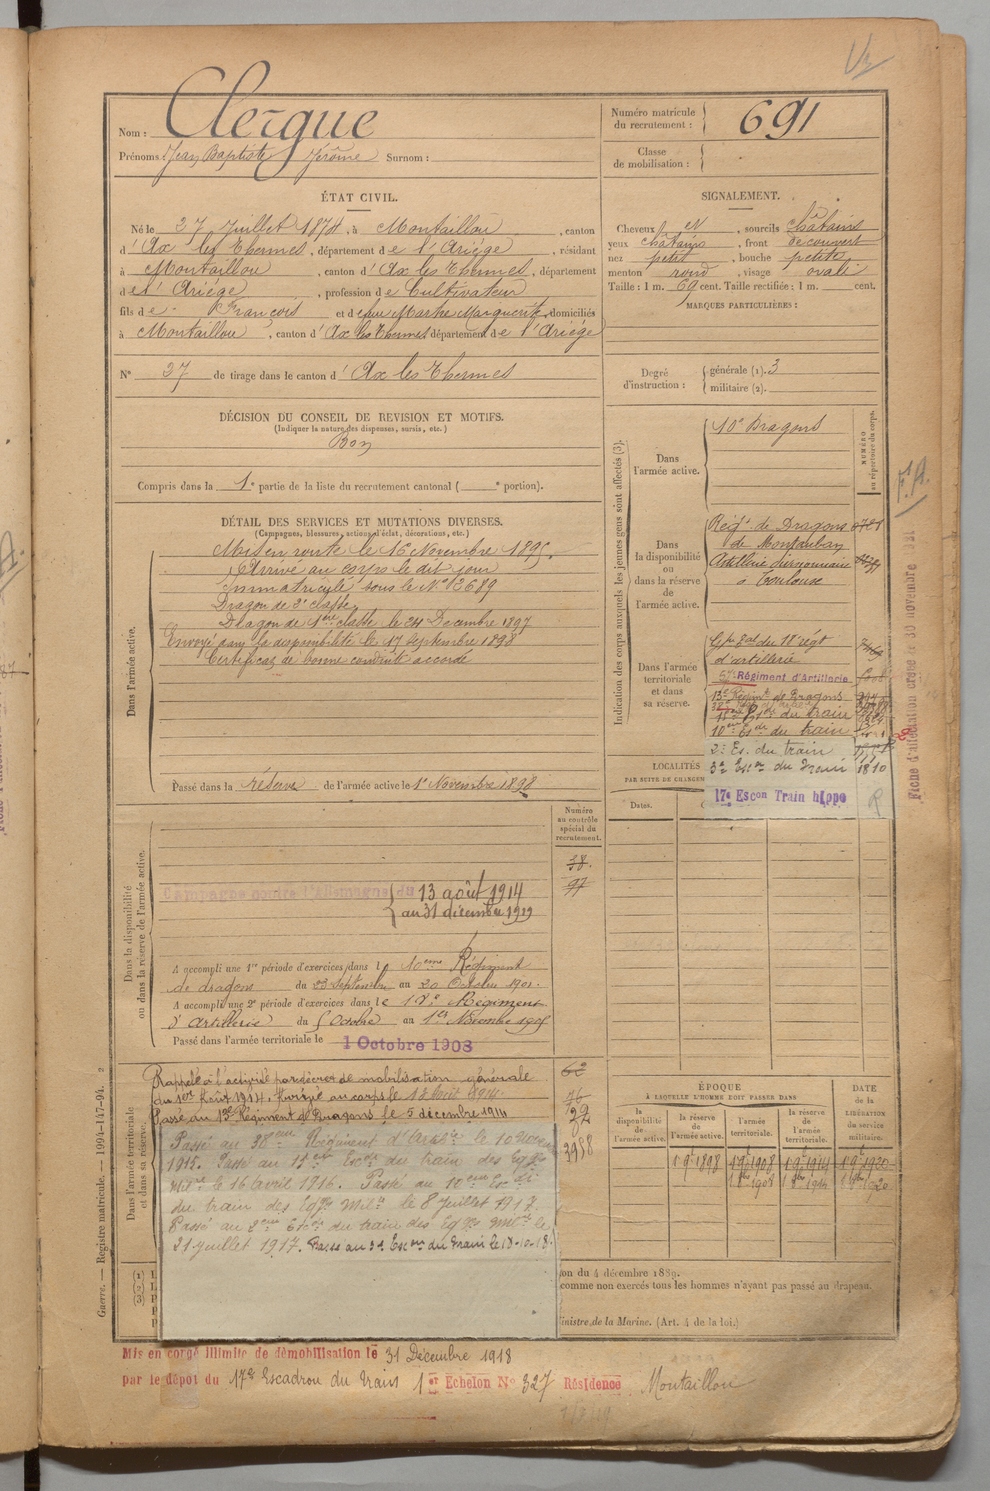 Nom : Clergue
Prénoms : Jean Baptiste Jérôme Surnom :
Numéro matricule du recrutement : 691
Classe de mobilisation :
ÉTAT CIVIL.
Né le 27 Juillet 1874, à Montaillou, canton
d'Ax les Thermes, département de l'Ariège, résidant
à Montaillou, canton d'Ax les Thermes, département
de l'Ariège, profession de Cultivateur
fils de François et de feue Marthe Marguerite, domiciliés
à Montaillou, canton d'Ax les Thermes département de l'Ariège
N° 27 de tirage dans le canton d'Ax les Thermes
SIGNALEMENT.
Cheveux et, sourcils châtains
yeux châtains, front découvert
nez petit, bouche petite
menton rond, visage ovale
Taille : 1 m. 69 cent. Taille rectifiée : 1 m. cent.
MARQUES PARTICULIÈRES :
Degré d'instruction : générale (1). 3
militaire (2).
DÉCISION DU CONSEIL DE REVISION ET MOTIFS.
(Indiquer la nature des dispenses, sursis, etc.)
Bon
Compris dans la 1e partie de la liste du recrutement cantonal ( e portion).
DÉTAIL DES SERVICES ET MUTATIONS DIVERSES.
(Campagnes, blessures, actions d'éclat, décorations, etc.)
Dans l'armée active.
Mis en route le 16 Novembre 1895.
Arrivé au corps le dit jour
Immatriculé sous le N° 2689
Dragon de 2e classe
Dragon de 1ère classe le 24 Decembre 1897
Envoyé dans la disponibilité le 17 Septembre 1898
Certificat de bonne conduite accordé
Passé dans la réserve de l'armée active le 1er Novembre 1898
Indication des corps auxquels les jeunes gens sont affectés (3).
NUMÉRO au répertoire du corps.
Dans l'armée active.
10e Dragons
Dans la disponibilité ou dans la réserve de l'armée active.
Régt de Dragons
de Montauban
Artillerie divisionnaire
à Toulouse
Dans l'armée territoriale et dans sa réserve.
Gpe tal du 18e régt
d'artillerie
57e Régiment d'Artillerie
13e Régimt de Dragons
10eme Esc de du train
2e Es. du train
3e Escon du Train 1810
17e Escon Train hippo
R
LOCALITÉS
PAR SUITE DE CHANGEM
Dates.
F. A.
Fiche d'affectation créée le 30 novembre
Dans la disponibilité ou dans la réserve de l'armée active.
Numéro au contrôle spécial du recrutement.
38.
97
Campagne contre l'Allemagne du 13 août 1914
au 31 décembre 1919
A accompli une 1re période d'exercices dans le 10eme Régiment
de dragons du 23 Septembre au 20 Octobre 1901.
A accompli une 2e période d'exercices dans le 18e Régiment
d'artillerie du 5 Octobre au 1er Novembre 1905
Passé dans l'armée territoriale le 1 Octobre 1908
Dans l'armée territoriale et dans sa réserve.
Rappelé à l'activité par décret de mobilisation générale
du 1er Août 1914. Arrivé au corps le 13 Août 1914.
Passé au 13e Régiment de Dragons le 5 décembre 1914
Passé au 38eme Régiment d'Artie le 10 Novem
1915. Passé au 15eme Escon du train des Eqges
Milres le 16 avril 1916. Passé au 10eme Escon
du train des Eqges Milres le 8 juillet 1917.
Passé au 2eme Escon du train des Eqges Milres le
21 juillet 1917. Passé au 3e Escon du Train le 18-10-18.
3958
ÉPOQUE
À LAQUELLE L'HOMME DOIT PASSER DANS
la disponibilité de l'armée active.
la réserve de l'armée active.
l'armée territoriale.
la réserve de l'armée territoriale.
DATE de la LIBÉRATION du service militaire.
1 9e 1898 1 9e 1908 1 9e 1914 1 9e 1920
on du 4 décembre 1889.
comme non exercés tous les hommes n'ayant pas passé au drapeau.
inistre de la Marine. (Art. 4 de la loi.)
Guerre. — Registre matricule. — 1994-147-94. 2
Mis en congé illimité de démobilisation le 31 Décembre 1918
par le dépôt du 17e Escadron du Train 1er Echelon N° 327 Résidence Montaillou